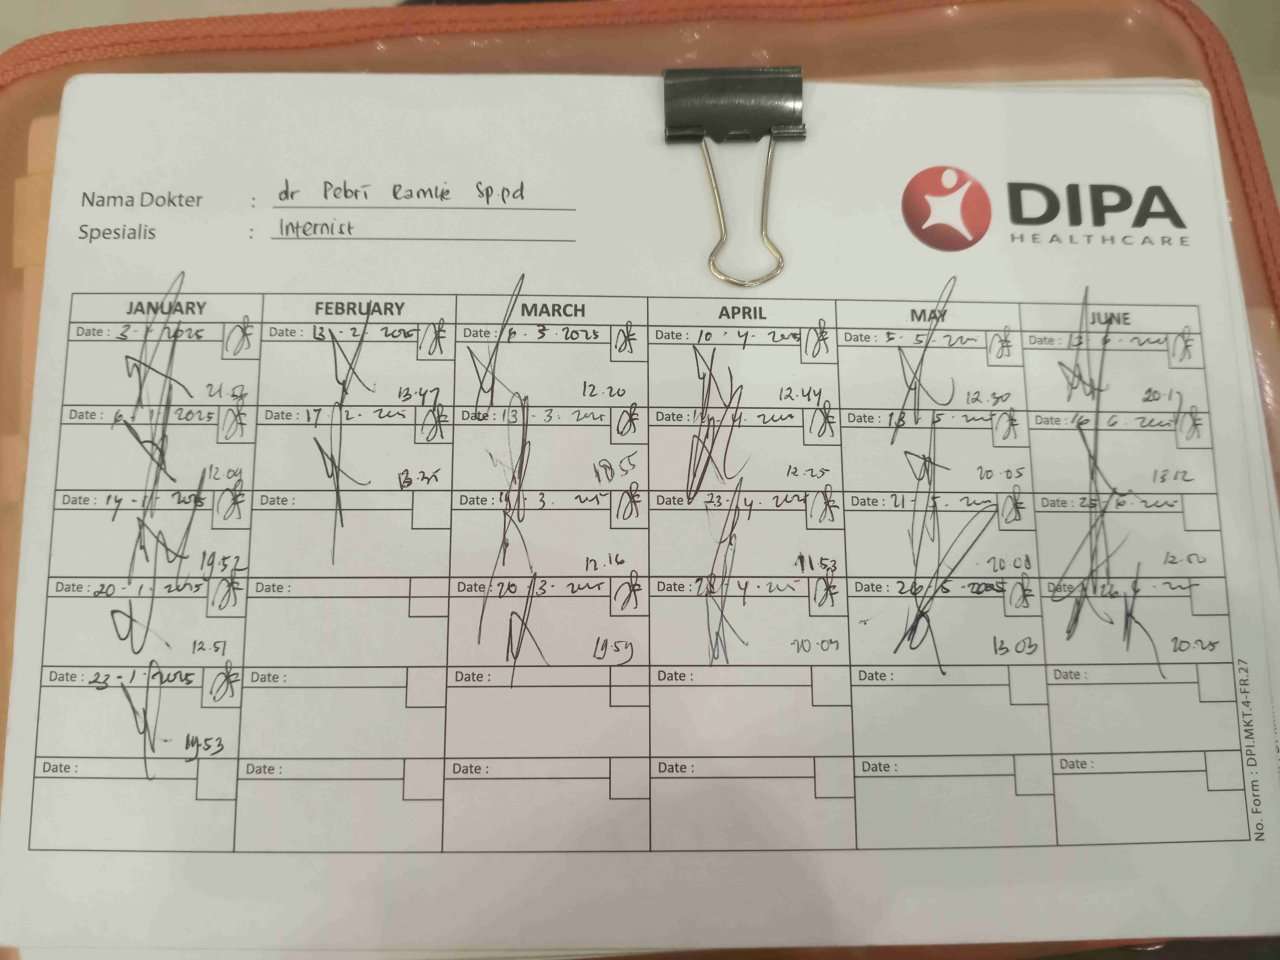 Nama Dokter : dr Pebri Ramlie Sp.pd
Spesialis : Internist
DIPA
HEALTHCARE
JANUARY FEBRUARY MARCH APRIL MAY JUNE
Date : 3-1-2025 Date : 13-2-2025 Date : 3-2025 Date : 10-4-2025 Date : 5-5-2025 Date : 13-6-2025
13.47 12.20 12.44 12.30 20.17
Date : 6-1-2025 Date : 17-2-2025 Date : 13-3-2025 Date : 4-2025 Date : 13-5-2025 Date : 16-6-2025
12.09 18.55 12.25 20.05 13.12
Date : 14-1-2025 Date : Date : 3-2025 Date : 23-4-2025 Date : 21-5-2025 Date : 25-6-2025
19.52 12.16 11.53 20.08
Date : 20-1-2025 Date : Date : 20-3-2025 Date : 4-2025 Date : 26-5-2025 Date : 26-6-2025
12.51 19.59 20.09 13.03 20.25
Date : 23-1-2025 Date : Date : Date : Date : Date :
19.53
Date : Date : Date : Date : Date : Date :
No. Form : DPI.MKT.4-FR.27